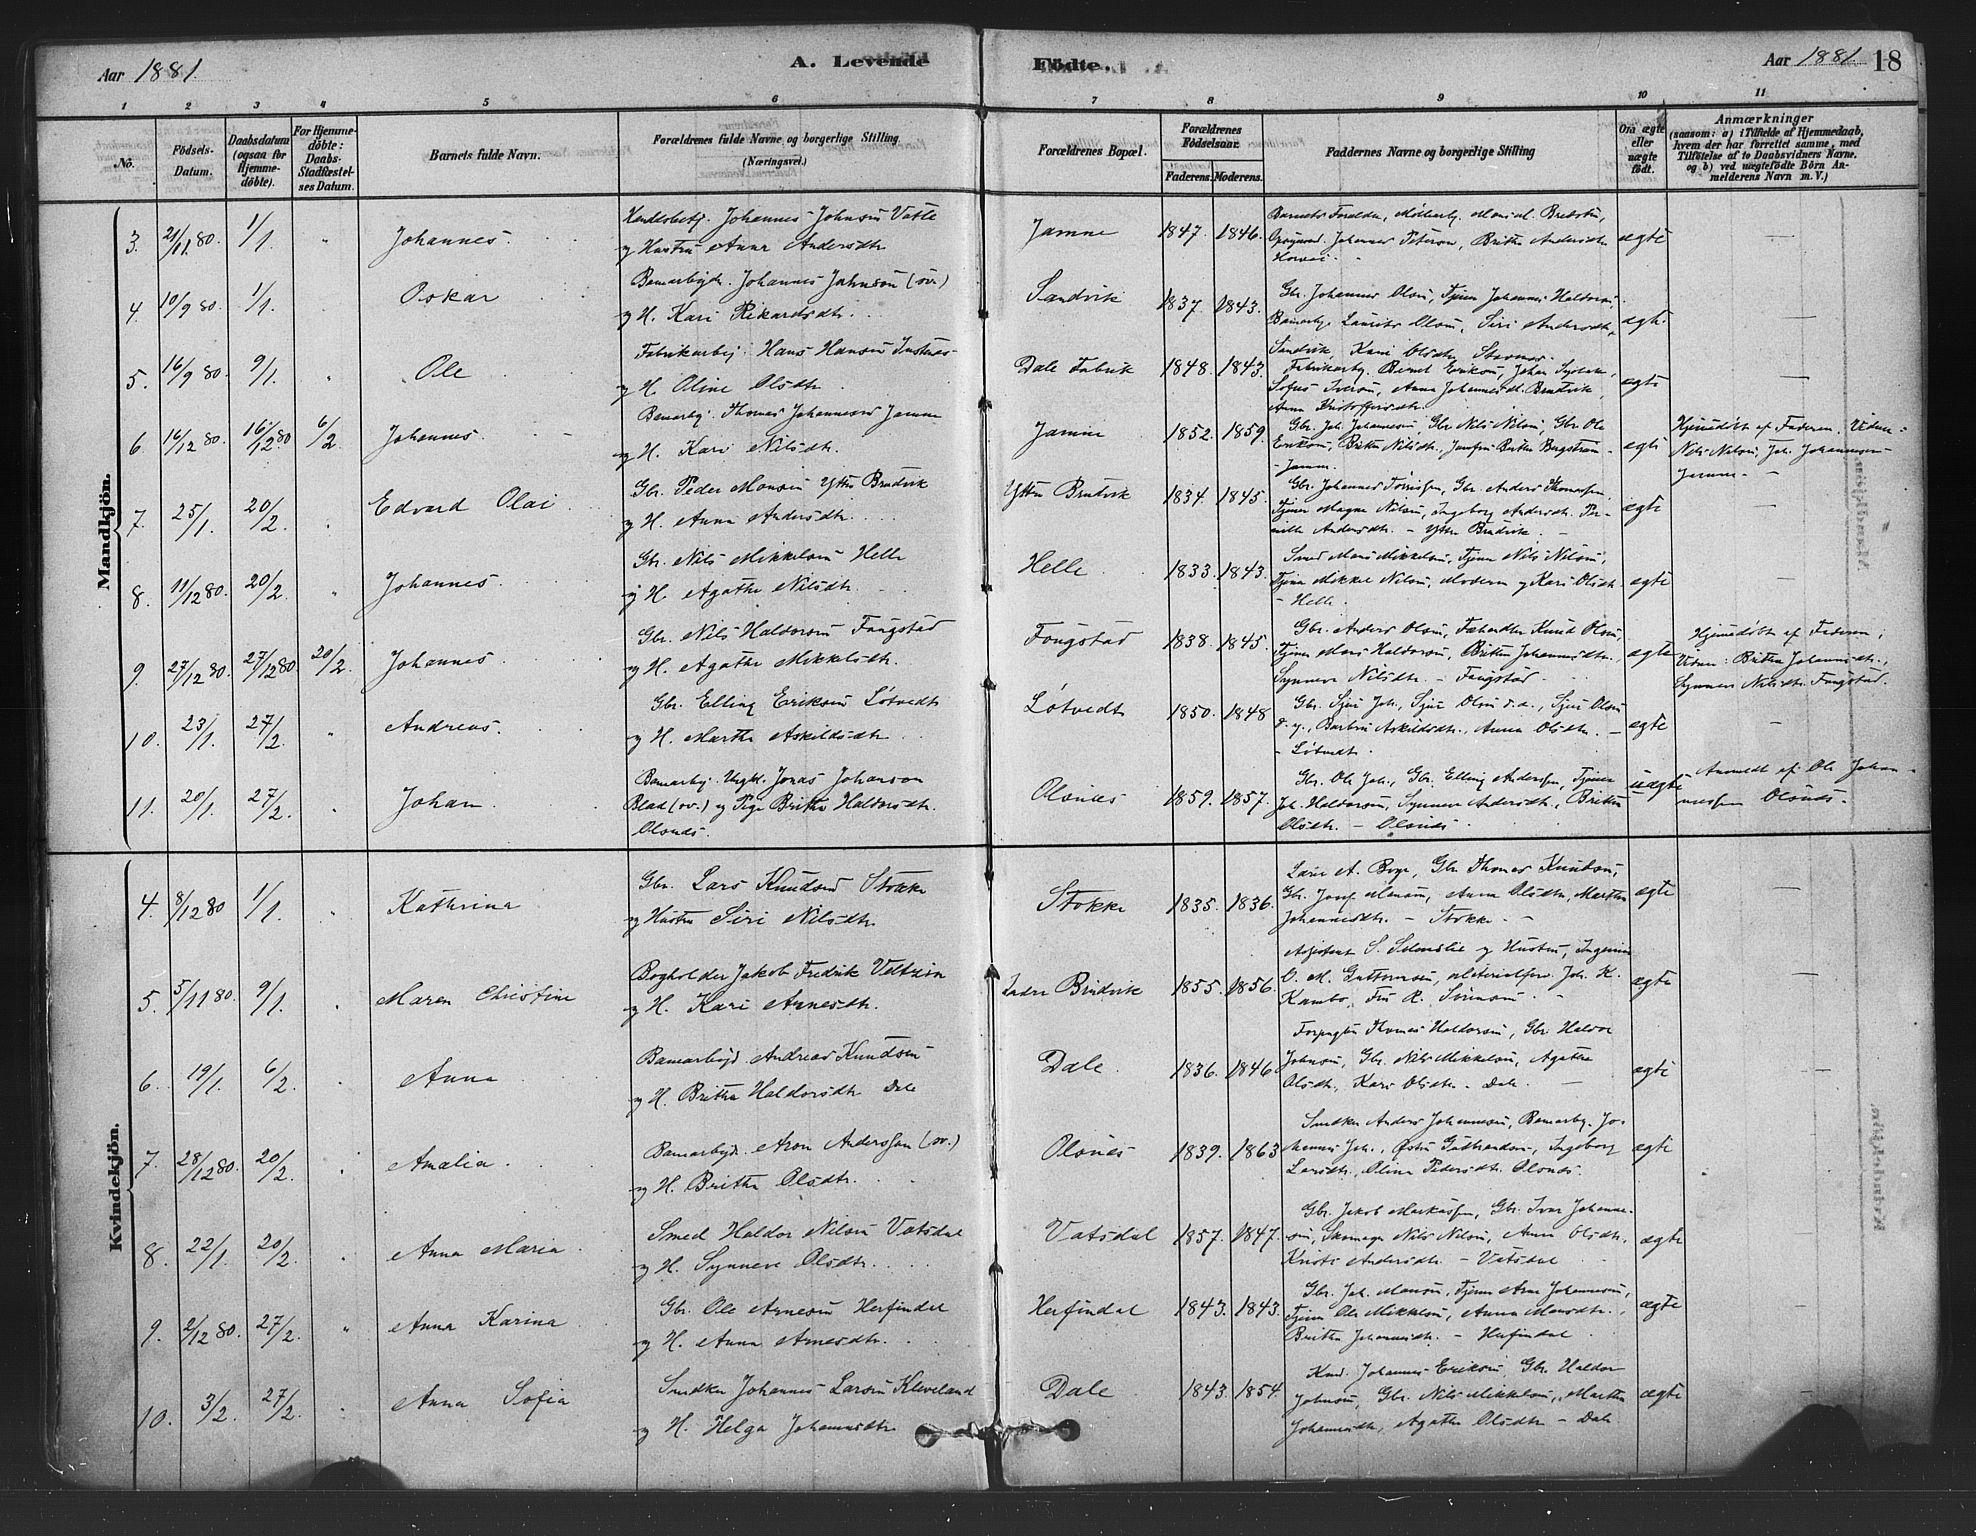 Aar 1881.
A. Levende
Födte.
Aar 1881.
18
1 2 3 4 5 6 7 8 9 10 11
No.
Födsels-
Datum.
Daabsdatum
(ogsaa for
Hjemme-
döbte).
For Hjemme-
döbte:
Daabs-
Stadfæstel-
ses Datum.
Barnets fulde Navn.
Forældrenes fulde Navne og borgerlige Stilling
(Næringsvei.)
Forældrenes Bopæl.
Forældrenes
Födselsaar.
Faderens. Moderens.
Faddernes Navne og borgerlige Stilling
Om ægte
eller
uægte
født.
Anmærkninger
(saasom: a) i Tilfælde af Hjemmedaab,
hvem der har forrettet samme, med
Tilføielse af to Daabsvidners Navne,
og b) ved uægtefödte Börn An-
melderens Navn m. V.)
Mandkjön.
3. 21/11 80. 1/1. " Johannes.
Johannes Johnsen
og Hustru Anna Andersdtr
Jamne 1847. 1846.
Johannes Petersen, Britha Andersdtr
ægte —
4. 10/9 80. 1/1. Oskar
Johannes Johnson (sv.)
og H. Kari Rikardsdtr.
Sandvik 1837. 1843.
Gbr. Johannes Olsen, Tjener Johannes Haldorsen.
Laurits Olsen, Siri Andersdtr
ægte —
5. 16/9 80. 9/1. " Ole
Fabrikarbej. Hans Hansen
og H. Oline Olsdtr.
Dale Fabrik 1848. 1843.
Sandvik, Kari Olsdtr
Sofus Iversen, Anna Johannesdtr. Brudvik
Anna Kristoffersdtr.
ægte —
6. 16/12 80. 16/12 80 6/2. Johannes.
Thomas Johannesen Jamne
og H. Kari Nilsdtr.
Jamne 1852. 1859.
Gbr. Joh. Johannesen, Gbr. Nils Nilsen, Gbr. Ole
Eriksen, Britha Nilsdtr.,
Jamne.
ægte
Hjemmedøbt af Faderen. Vidner
Nils Nilsen, Joh. Johannesen
Jamne —
7. 25/1. 20/2. Edvard Olai
Gbr. Peder Monsen Yttre Brudvik
og H. Anna Andersdtr.
Yttre Brudvik 1834. 1845.
Gbr. Johannes Gbr. Anders Thomassen,
Tjener Magne Nilsen, Ingeborg Andersdtr. Per-
nille Andersdtr. — Yttre Brudvik. —
ægte —
8. 11/12 80. 20/2. " Johannes.
Gbr. Nils Mikkelsen Helle
og H. Agathe Nilsdtr.
Helle 1833. 1843.
Smed Mons Mikkelsen, Tjener Nils Nilsen,
Tjener Mikkel Nilsen, Moderen og Kari Olsdtr.
— Helle.
ægte —
9. 27/12 80 27/12 80 20/2. Johannes.
Gbr. Nils Haldorsen Fougstad
og H. Agathe Mikkelsdtr.
Fougstad 1838. 1845.
Gbr. Anders Olsen, Knud Olsen,
Tjener Mons Haldorsen, Britha Johannesdtr.,
Synneve Nilsdtr. — Fougstad.
ægte
Hjemmedøbt af Faderen;
Vidner: Britha Johannesdtr.,
Synneve Nilsdtr. Fougstad.
10. 23/1. 27/2. " Andreas.
Gbr. Elling Eriksen Løtvedt
og H. Martha Askildsdtr.
Løtvedt 1850. 1848
Gbr. Sjur Joh., Sjur Olsen d. æ., Sjur Olsen
d. y., Barbru Askildsdtr., Anna Olsdtr. —
— Løtvedt.
ægte —
11. 20/1. 27/2. " Johan.
Jonas Johanson
Blad (sv.) og Pige Britha Haldorsdtr.
Olsnes.
Olsnes 1859. 1857.
Gbr. Ole Joh., Gbr. Elling Anderssen, Tjener
Joh. Haldorsen, Synneve Andersdtr., Britha
Olsdtr. — Olsnes.
uægte
Anmeldt af Ole Johan-
nessen Olsnes.
Kvindekjön.
4. 8/12 80 1/1. " Kathrina
Gbr. Lars Knudsen Stokke
og Hustru Siri Nilsdtr.
Stokke 1835. 1836.
Gbr. Thomas Knudsen,
Gbr. Josef Monsen, Anna Olsdtr, Martha
Johannesdtr. — Stokke. —
ægte —
5. 5/11 80. 9/1. " Maren Christine
Bogholder Jakob Fredrik
og H. Kari Arnesdtr.
Indre Brudvik 1855. 1856.
Assistent S. og Hustru, Ingeniør
O. M. Guttormsen, Materialforv. Joh. K.
Fru R.
ægte —
6. 19/1. 6/2. " Anna
Andreas Knudsen
og H. Britha Haldorsdtr Dale
Dale. 1836. 1846
Forpagter Thomas Haldorsen, Gbr. Haldor
Johnsen, Gbr. Nils Mikkelsen, Agatha
Olsdtr., Kari Olsdtr. Dale. —
ægte —
7. 28/12 80. 20/2. " Amalia.
Aron Anderssen (sv.)
og H. Britha Olsdtr.
Olsnes 1839. 1863
Snedker Anders Johannesen, Jo-
hannes Joh., Ingeborg
Larsdtr., Olina Pedersdtr. Olsnes.
ægte —
8. 22/1. 20/2. " Anna Maria.
Smed Haldor Nilsen Vatsdal
og H. Synneve Olsdtr.
Vatsdal 1857. 1847.
Gbr. Jakob Markussen, Gbr. Ivar Johanne-
sen, Skomager Nils Nilsen, Anna Olsdtr.,
Andersdtr. — Vatsdal
ægte —
9. 2/12 80. 27/2. " Anna Karina
Gbr. Ole Arnesen Herfindal
og H. Anna Arnesdtr.
Herfindal 1843. 1843.
Gbr. Joh. Monsen, Tjener Arne Johannesen,
Tjener Ole Mikkelsen, Anna Monsdtr.,
Britha Johannesdtr. — Herfindal
ægte —
10. 3/2. 27/2. " Anna Sofia
Snedker Johannes Larsen Kleveland
og H. Helga Johannesdtr
Dale 1843. 1854.
Johannes Eriksen, Gbr. Haldor
Johnsen, Gbr. Nils Mikkelsen, Martha
Johannesdtr, Agatha Olsdtr — Dale
ægte